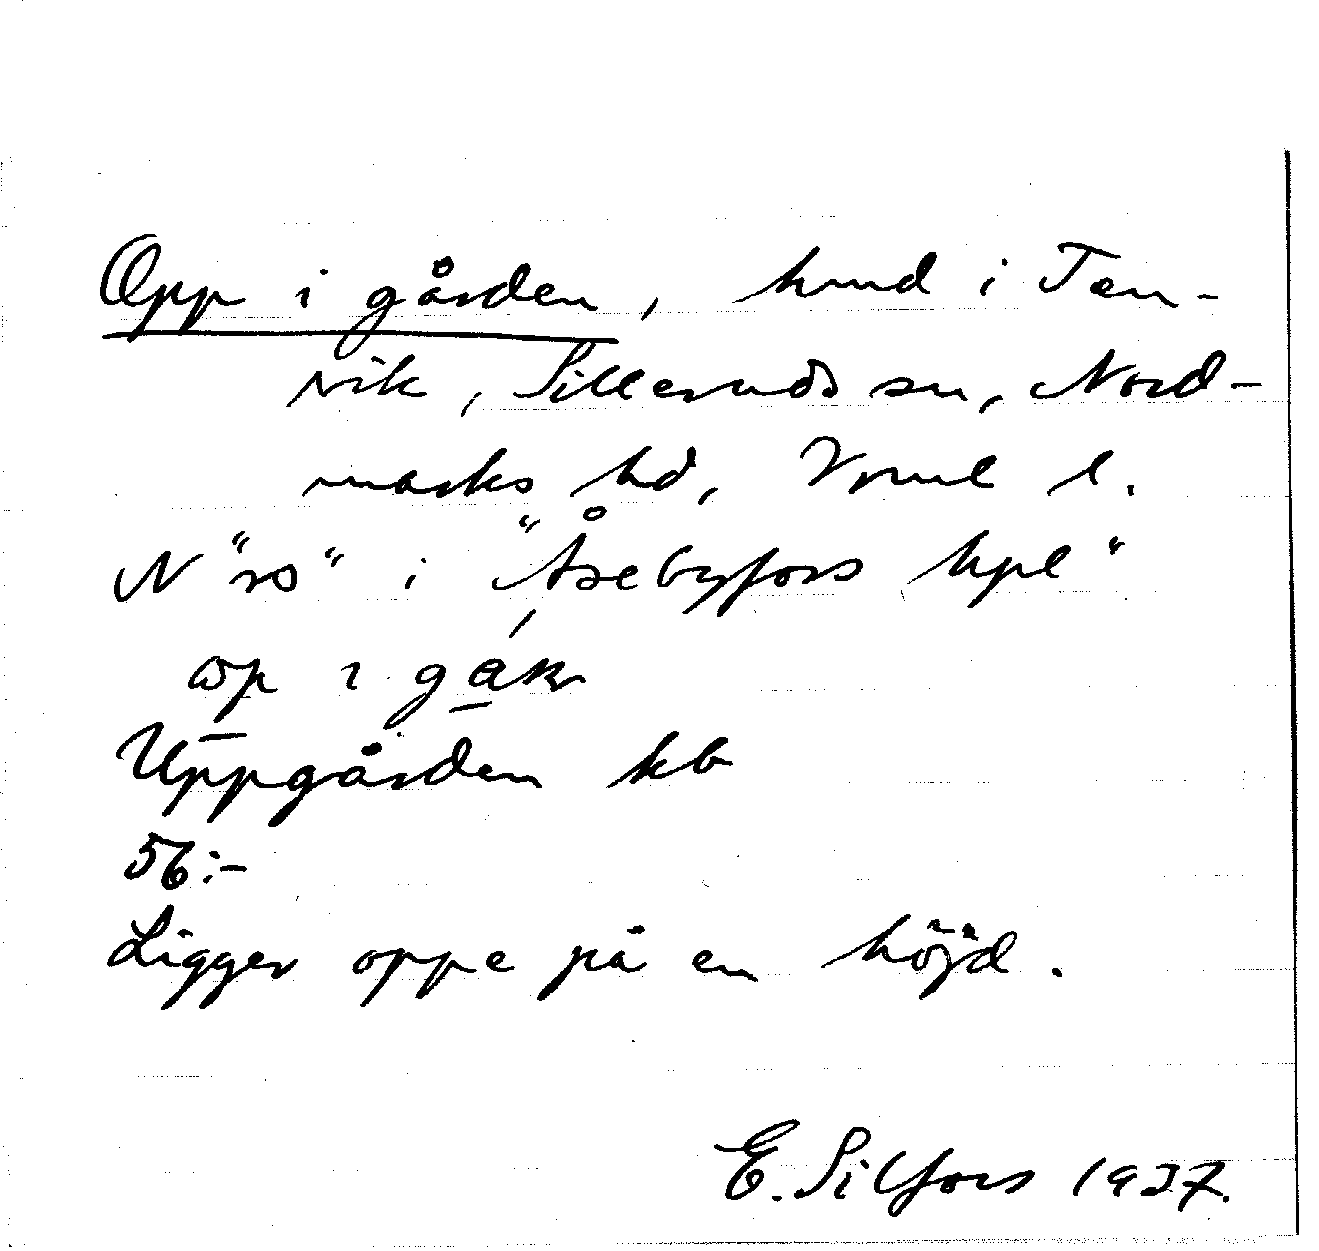 Opp i gården, hmd i Tan-
vik, Silleruds sn, Nord-
marks hd, Vrml l.
N "ro" i "Åsebyfors kpl"
op i
Uppgården kb
56:-
Ligger oppe på en höjd.
E. Silfors 1937.